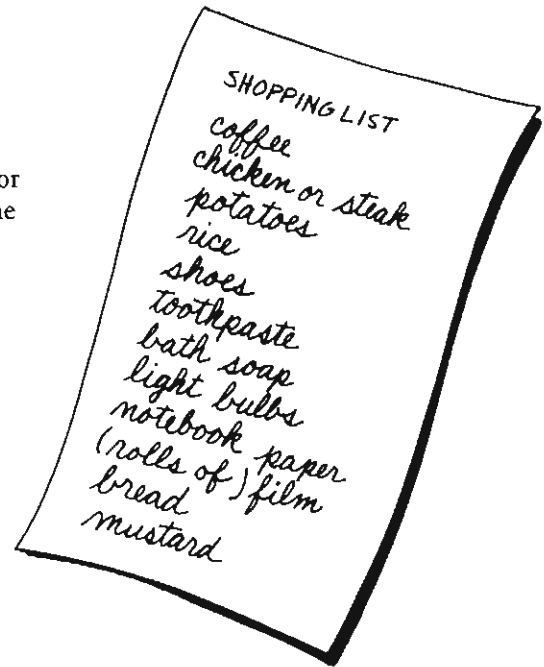 or
ne
SHOPPING LIST
coffee
chicken or steak
potatoes
rice
shoes
toothpaste
bath soap
light bulbs
notebook paper
(rolls of) film
bread
mustard